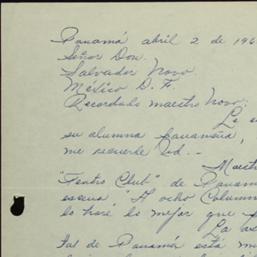 Panamá abril 2 de 196
Señor Don.
Salvador Novo
México D. F.
Recordado maestro Novo:
Le
su alumna panameña,
me recuerde Ud. -
Maest
"Teatro Club" de Panam
escena "A ocho Column
lo haré lo mejor que
La
tal de Panamá está m